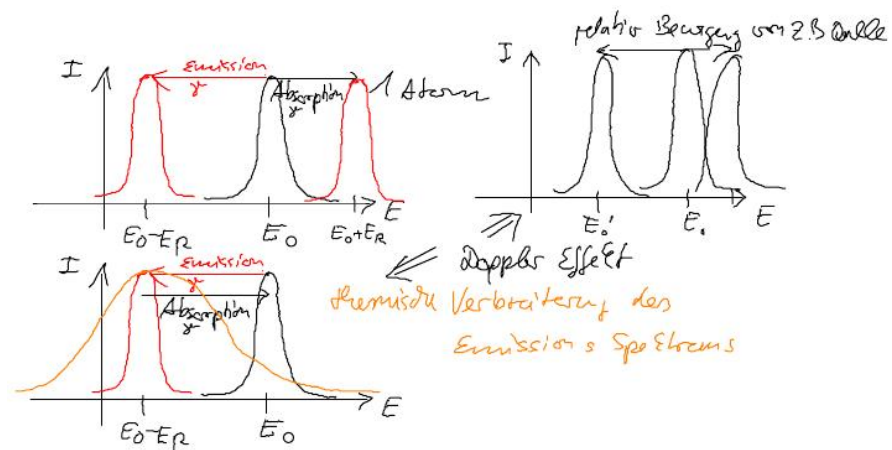 I
Emission
γ
Absorption
γ
1 Atom
E₀-E_R
E₀
E₀+E_R
E
relativ Bewegung von z.B Quelle
I
E₀'
E₀
E
Doppler Effekt
I
Emission
γ
Absorption
γ
E₀-E_R
E₀
E
thermische Verbreiterung des
Emissions Spektrums